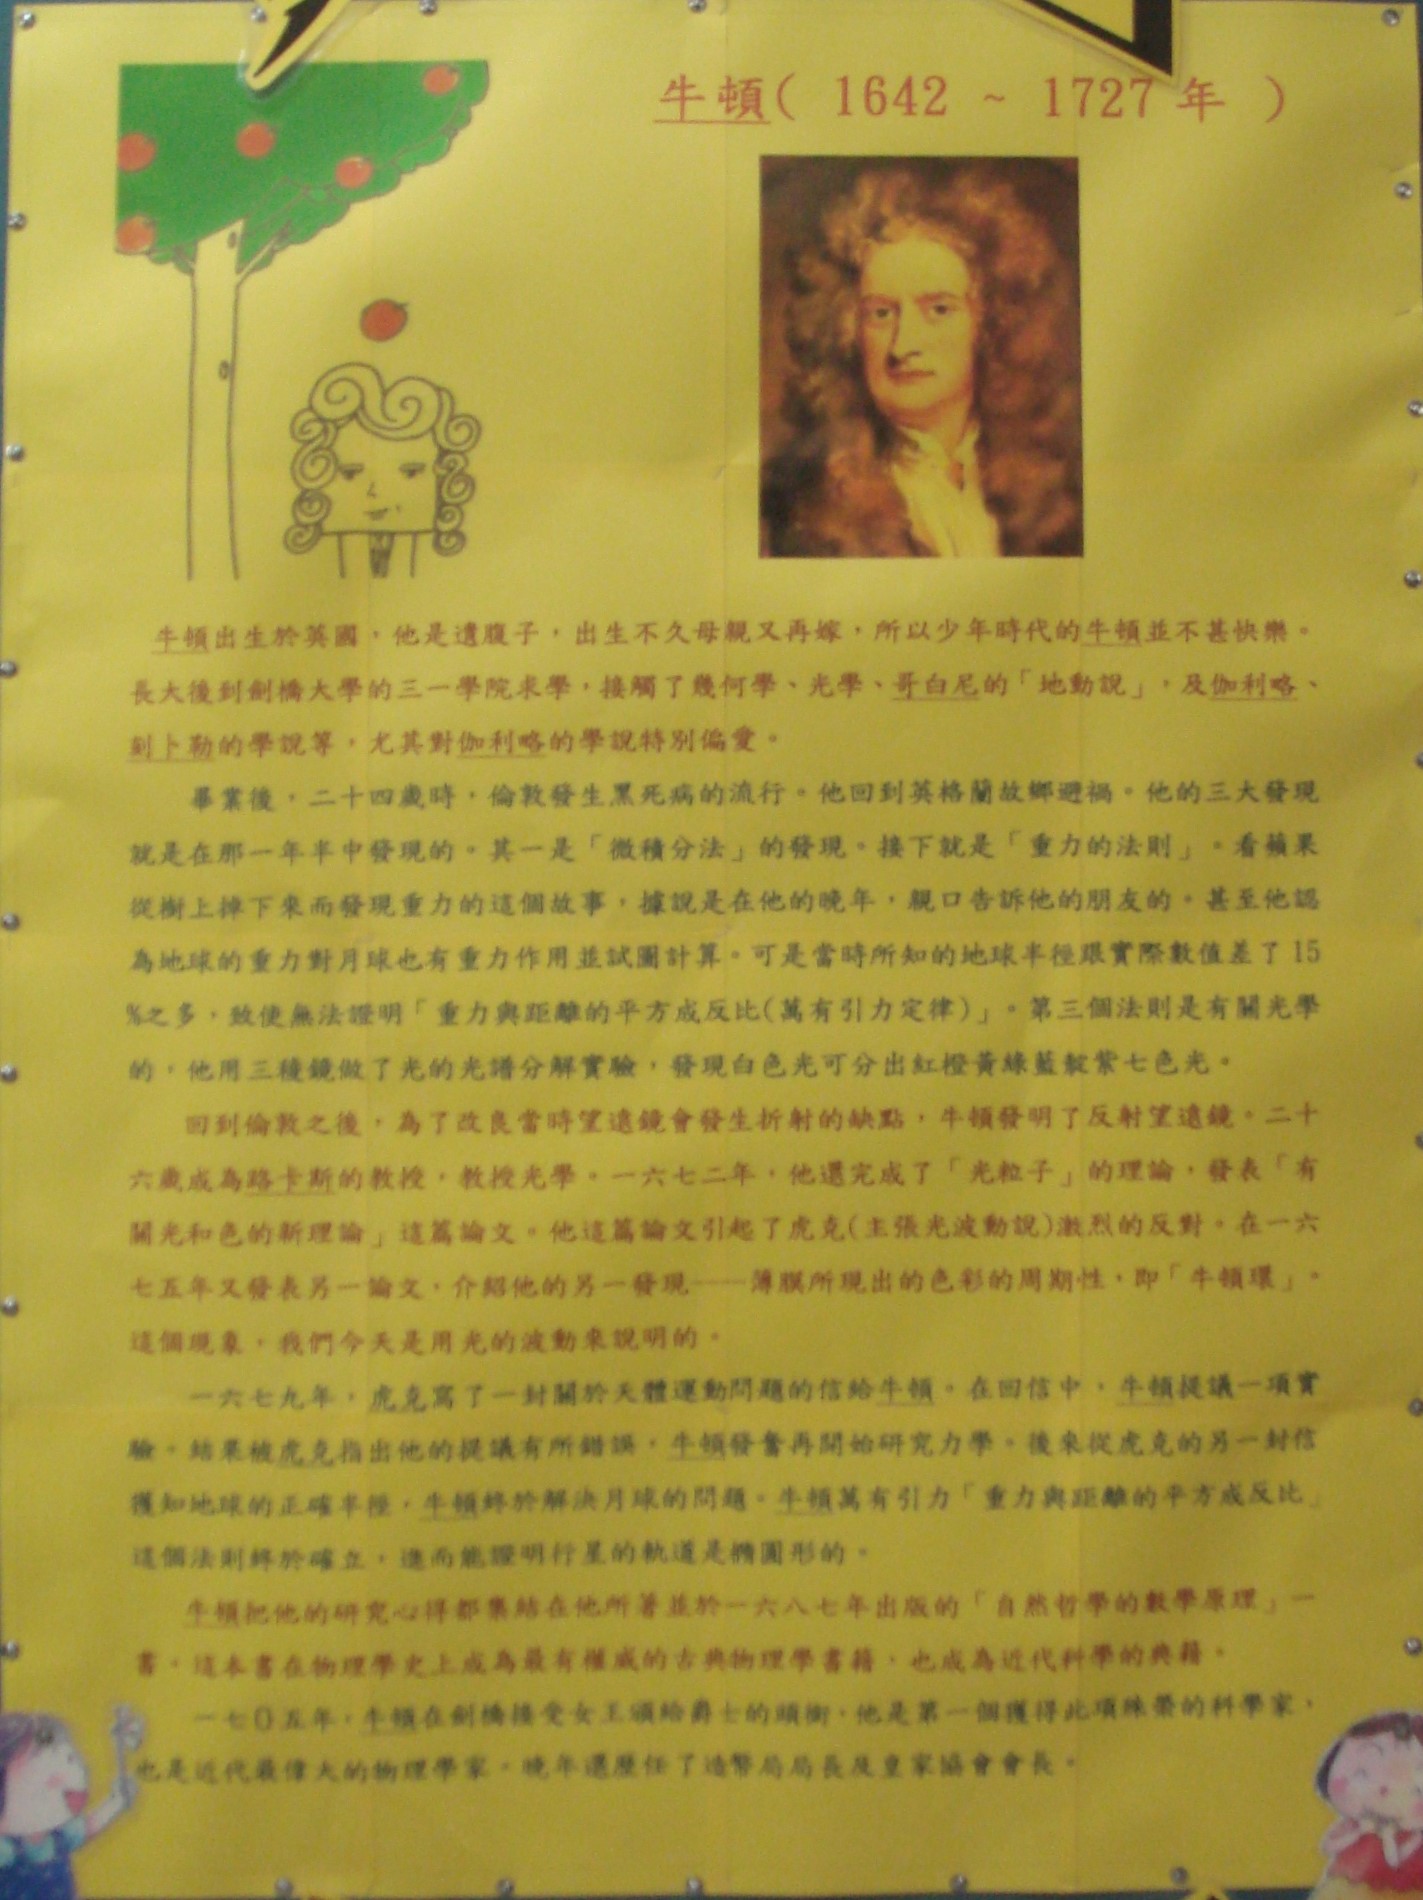 牛頓( 1642 ~ 1727 年 )
牛頓出生於英國，他是遺腹子，出生不久母親又再嫁，所以少年時代的牛頓並不甚快樂。
長大後到劍橋大學的三一學院求學，接觸了幾何學、光學、哥白尼的「地動說」，及伽利略、
刻卜勒的學說等，尤其對伽利略的學說特別偏愛。
畢業後，二十四歲時，倫敦發生黑死病的流行。他回到英格蘭故鄉避禍。他的三大發現
就是在那一年半中發現的。其一是「微積分法」的發現。接下就是「重力的法則」。看蘋果
從樹上掉下來而發現重力的這個故事，據說是在他的晚年，親口告訴他的朋友的。甚至他認
為地球的重力對月球也有重力作用並試圖計算。可是當時所知的地球半徑跟實際數值差了 15
%之多，致使無法證明「重力與距離的平方成反比(萬有引力定律)」。第三個法則是有關光學
的，他用三稜鏡做了光的光譜分解實驗，發現白色光可分出紅橙黃綠藍靛紫七色光。
回到倫敦之後，為了改良當時望遠鏡會發生折射的缺點，牛頓發明了反射望遠鏡。二十
六歲成為路卡斯的教授，教授光學。一六七二年，他還完成了「光粒子」的理論，發表「有
關光和色的新理論」這篇論文。他這篇論文引起了虎克(主張光波動說)激烈的反對。在一六
七五年又發表另一論文，介紹他的另一發現——薄膜所現出的色彩的周期性，即「牛頓環」。
這個現象，我們今天是用光的波動來說明的。
一六七九年，虎克寫了一封關於天體運動問題的信給牛頓。在回信中，牛頓提議一項實
驗。結果被虎克指出他的提議有所錯誤，牛頓發奮再開始研究力學。後來從虎克的另一封信
獲知地球的正確半徑，牛頓終於解決月球的問題。牛頓萬有引力「重力與距離的平方成反比」
這個法則終於確立，進而能證明行星的軌道是橢圓形的。
牛頓把他的研究心得都集結在他所著並於一六八七年出版的「自然哲學的數學原理」一
書。這本書在物理學史上成為最有權威的古典物理學書籍，也成為近代科學的典籍。
一七〇五年，牛頓在劍橋接受女王頒給爵士的頭銜，他是第一個獲得此項殊榮的科學家，
也是近代最偉大的物理學家。晚年還歷任了造幣局局長及皇家協會會長。